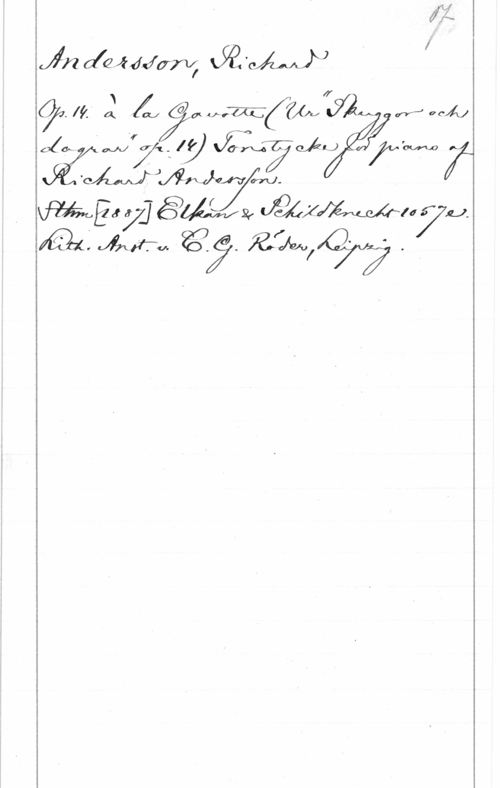 Andersson, Richard
Op. 14. à la Gavotte (Ur "Skuggor och
dagrar" op. 14) Tonstycke för piano af
Richard Andersson.
Sthm [1887] Elkan & Schildknecht 1057 e.
Lith. Anst. v. C. G. Röder, Leipzig.